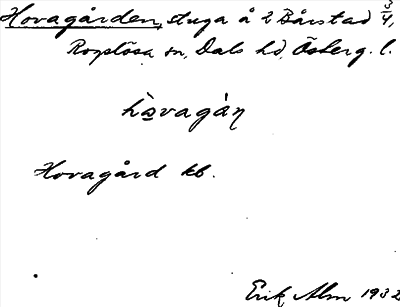 Hovagården, stuga å 2 Bårstad 3/4,
Rogslösa sn, Dals hd, Österg. l.
hò̱vagàṇ
Hovagård kb.
Erik Alm 1932